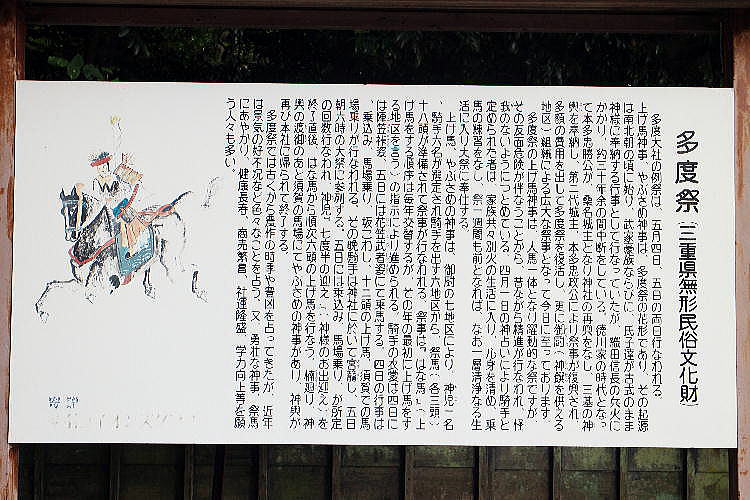 多度祭(三重県無形民俗文化財)
多度大社の例祭は、五月四日、五日の両日行なわれる。
上げ馬神事、やぶさめ神事は、多度祭の花形であり、その起源
は南北朝の頃に始り、武家豪族ならびに、氏子達が古式のまま
神様に奉納する行事として行なっていたが、織田信長の兵火に
かかり、約三十年余の間中断をしていた。徳川家の時代となっ
て本多忠勝公が、桑名城主となり神社の再興をなし、三基の神
輿を奉納し、第二代城主、本多忠政公により祭事が復興され、
多額の費用を出して多度祭を復活し、更に御厨(神饌を供える
地区)組織による広大な祭事となって今日に至っております。
多度祭の上げ馬神事は、人馬一体となり躍動的な祭ですが、
その反面危険が伴なうことから、昔ながら精進が行なわれ、怪
我のないようにつとめている。四月一日の神占いにより騎手と
定められた者は、家族共々別火の生活に入り、心身を清め、乗
馬の練習をなし、祭一週間も前となれば、なお一層清浄なる生
活に入り大祭に奉仕する。
上げ馬、やぶさめの神事は、御厨の七地区により、神児一名
、騎手六名が選定され騎手を出す六地区から、祭馬、各三頭、
十八頭が準備されて祭事が行なわれる。祭事は、はな馬(、上
げ馬をする順序は毎年交替するが、その年の最初に上げ馬をす
る地区を言う)の指示により進められる。騎手の衣裳は四日に
は陣笠裃姿、五日には花笠武者姿にて乗馬する。四日の行事は
、乗込み、馬場乗り、坂こわし、十二頭の上げ馬、須賀での馬
場乗りが行なわれる。その晩騎手は神社に於いて宮籠し、五日
朝六時の大祭に参列する。五日には乗込み、馬場乗り、が所定
の回数行なわれ、神児、七度半の迎え(、神様のお出迎え)を
終了直後、はな馬から順次六頭の上げ馬を行なう。楠廻り、神
輿の渡御のあと須賀の馬場にてやぶさめの神事があり、神輿が
再び本社に帰られて終了する。
多度祭では古くから農作の時季や豊凶を占ってきたが、近年
は景気の好不況など色々なことを占う。又、勇壮な神事、祭馬
にあやかり、健康長寿、商売繁言、社運隆盛、学力向上等を願
う人々も多い。